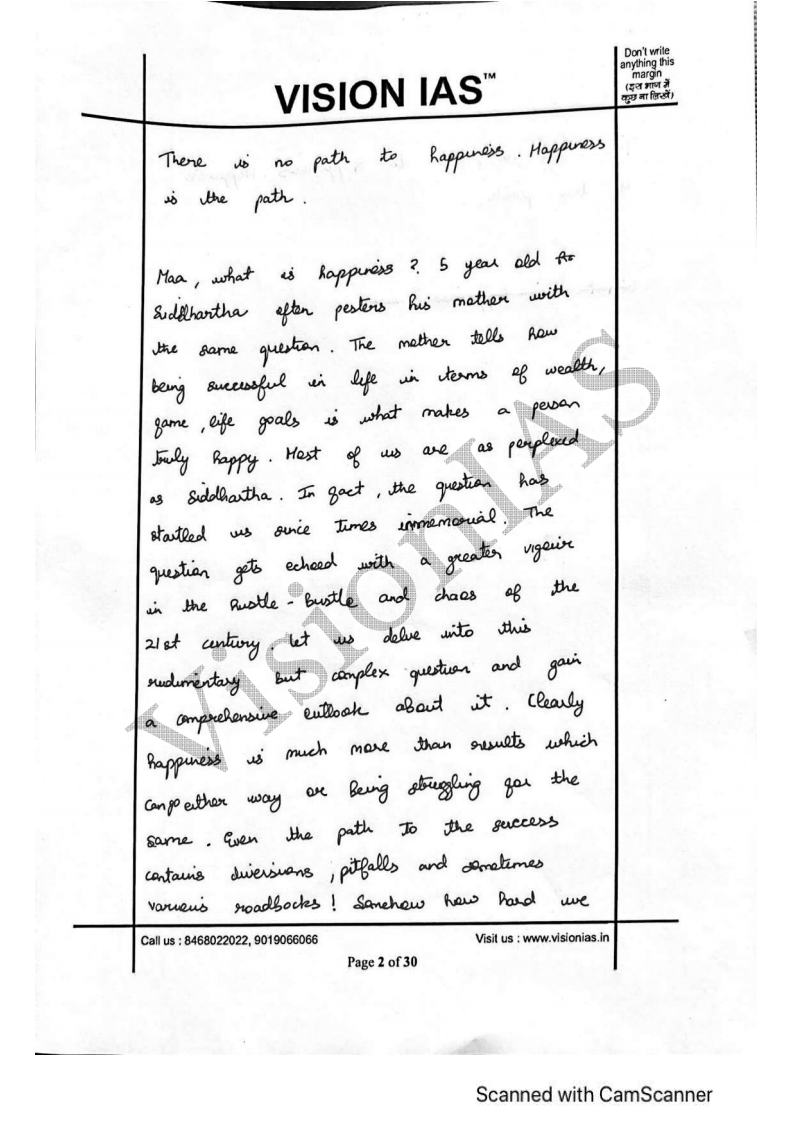 Don't write
anything this
margin
(इस भाग में
कुछ ना लिखें)
VISION IAS™
There is no path to happiness. Happiness
is the path.
Maa, what is happiness? 5 year old
Siddhartha often pesters his mother with
the same question. The mother tells how
being successful in life in terms of wealth,
fame, life goals is what makes a person
truly happy. Most of us are as perplexed
as Siddhartha. In fact, the question has
startled us since times immemorial. The
question gets echoed with a greater vigour
in the hustle-bustle and chaos of the
21st century. Let us delve into this
rudimentary but complex question and gain
a comprehensive outlook about it. Clearly
happiness is much more than results which
can go either way or being struggling for the
same. Even the path to the success
contains diversions, pitfalls and sometimes
various roadbocks! Somehow how hard we
VisionIAS
Call us : 8468022022, 9019066066
Visit us : www.visionias.in
Page 2 of 30
Scanned with CamScanner